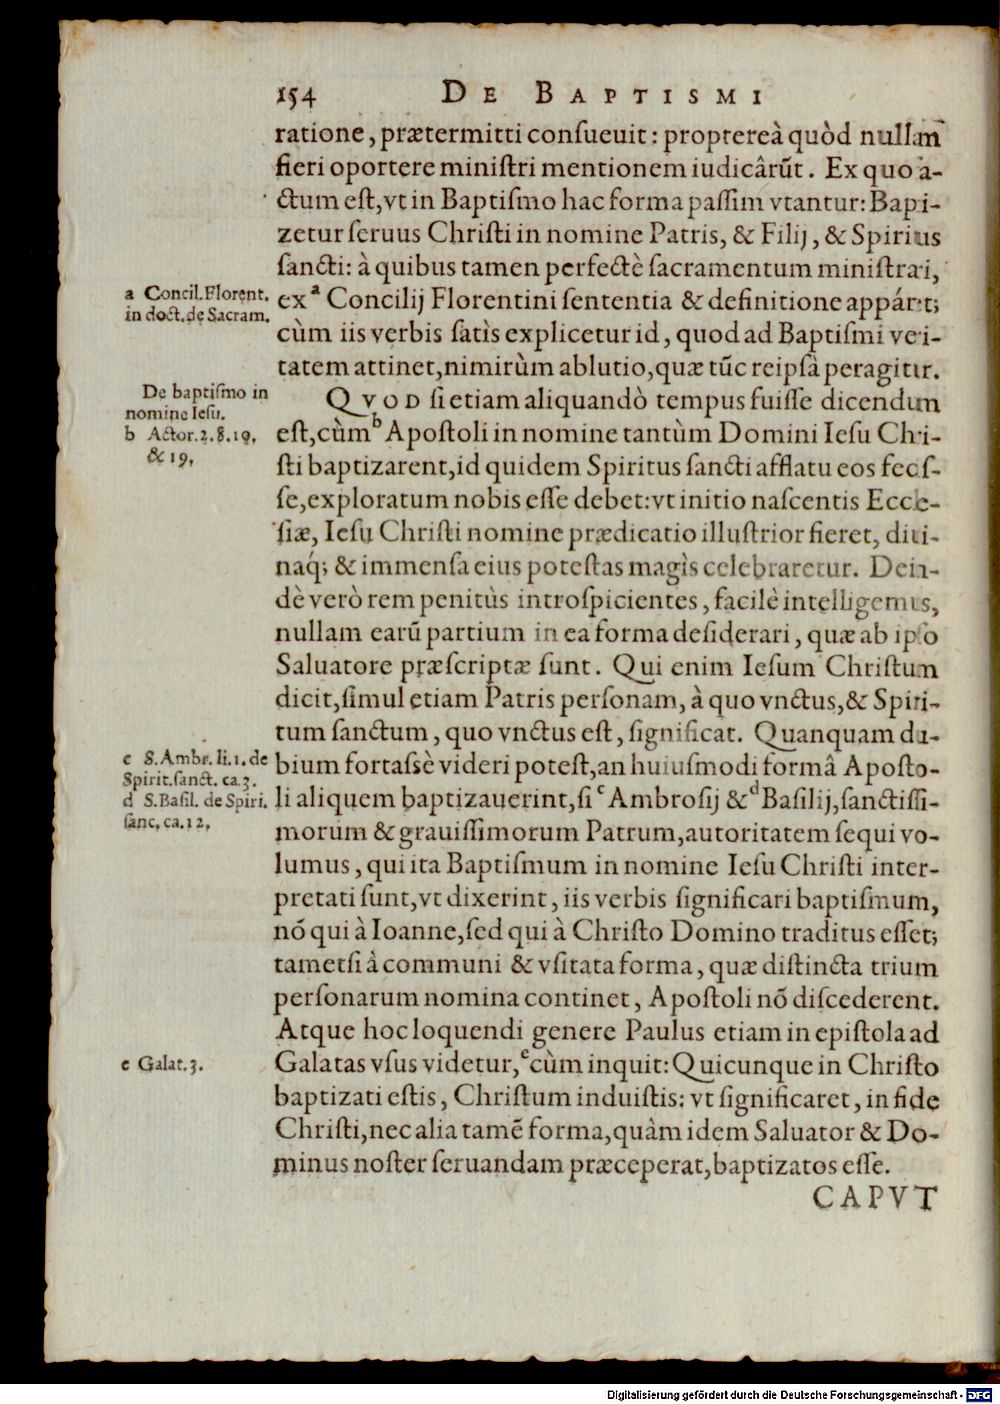 154 DE BAPTISMI
ratione, prætermitti conſueuit: proptereà quòd nullam
fieri oportere miniſtri mentionem iudicârũt. Ex quo a-
ctum eſt, vt in Baptiſmo hac forma paſſim vtantur: Bapi-
zetur ſeruus Chriſti in nomine Patris, & Filij, & Spiritus
ſancti: à quibus tamen perfectè ſacramentum miniſtrari,
a Concil. Florent.
in doct. de Sacram.
ex a Concilij Florentini ſententia & definitione appáret;
cùm iis verbis ſatìs explicetur id, quod ad Baptiſmi veri-
tatem attinet, nimirùm ablutio, quæ tũc reipſà peragitur.
De baptiſmo in
nomine Ieſu.
b Actor. 2. 8. 10.
& 19.
QVOD ſi etiam aliquandò tempus fuiſſe dicendum
eſt, cùm b Apoſtoli in nomine tantùm Domini Ieſu Chri-
ſti baptizarent, id quidem Spiritus ſancti afflatu eos feciſ-
ſe, exploratum nobis eſſe debet: vt initio naſcentis Eccle-
ſiæ, Ieſu Chriſti nomine prædicatio illuſtrior fieret, diui-
naq́; & immenſa eius poteſtas magìs celebraretur. Dein-
dè verò rem penitùs introſpicientes, facilè intelligemus,
nullam earũ partium in ea forma deſiderari, quæ ab ipſo
Saluatore præſcriptæ ſunt. Qui enim Ieſum Chriſtum
dicit, ſimul etiam Patris perſonam, à quo vnctus, & Spiri-
tum ſanctum, quo vnctus eſt, ſignificat. Quanquam du-
c S. Ambr. li. 1. de
Spirit. ſanct. ca. 3.
d S. Baſil. de Spiri.
ſanc. ca. 12.
bium fortaſsè videri poteſt, an huiuſmodi formâ Apoſto-
li aliquem baptizauerint, ſi c Ambroſij & d Baſilij, ſanctiſſi-
morum & grauiſſimorum Patrum, autoritatem ſequi vo-
lumus, qui ita Baptiſmum in nomine Ieſu Chriſti inter-
pretati ſunt, vt dixerint, iis verbis ſignificari baptiſmum,
nō qui à Ioanne, ſed qui à Chriſto Domino traditus eſſet;
tametſi â communi & vſitata forma, quæ diſtincta trium
perſonarum nomina continet, Apoſtoli nō diſcederent.
Atque hoc loquendi genere Paulus etiam in epiſtola ad
e Galat. 3.
Galatas vſus videtur, e cùm inquit: Quicunque in Chriſto
baptizati eſtis, Chriſtum induiſtis: vt ſignificaret, in fide
Chriſti, nec alia tamē forma, quàm idem Saluator & Do-
minus noſter ſeruandam præceperat, baptizatos eſſe.
CAPVT
Digitalisierung gefördert durch die Deutsche Forschungsgemeinschaft - DFG